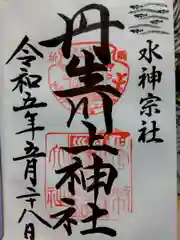 水神宗社
丹生川上神社
令和五年五月二十八日